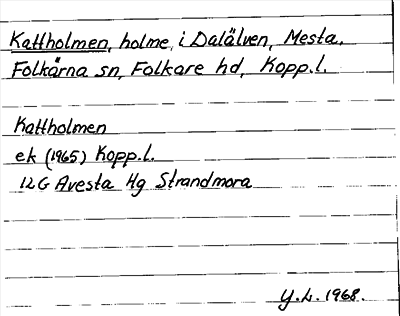 Kattholmen, holme, i Dalälven, Mesta,
Folkärna sn, Folkare hd, Kopp.l.
Kattholmen
ek (1965) Kopp.l.
12G Avesta 4g Strandmora
Y.L. 1968.